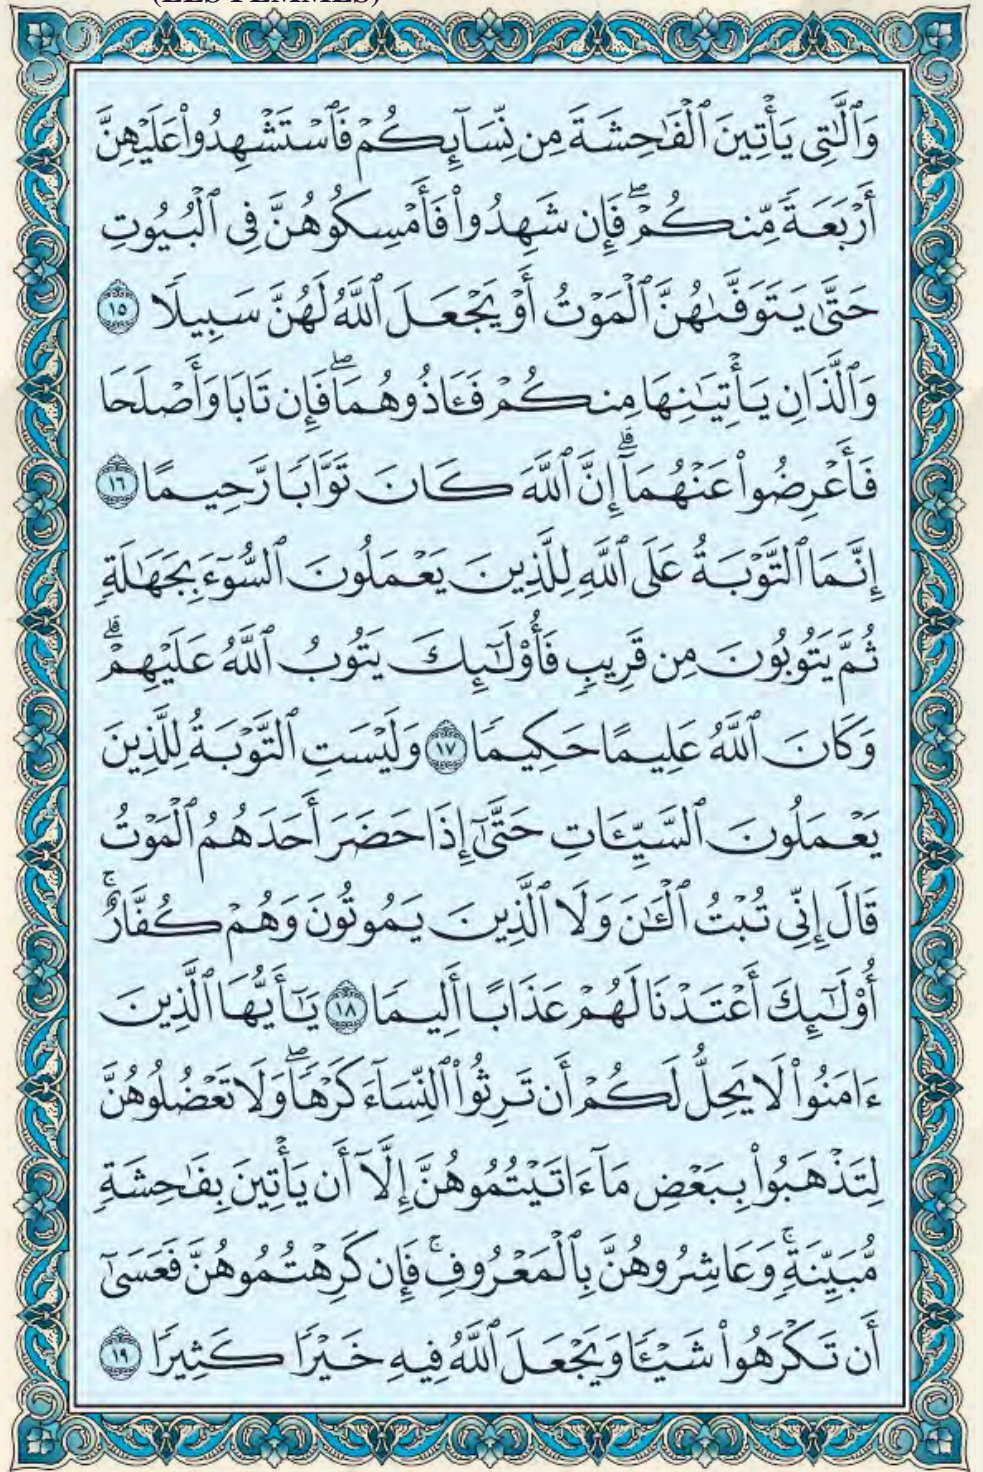 (LES FEMMES)
وَٱلَّٰتِى يَأْتِينَ ٱلْفَٰحِشَةَ مِن نِّسَآئِكُمْ فَٱسْتَشْهِدُوا۟ عَلَيْهِنَّ
أَرْبَعَةً مِّنكُمْ ۖ فَإِن شَهِدُوا۟ فَأَمْسِكُوهُنَّ فِى ٱلْبُيُوتِ
حَتَّىٰ يَتَوَفَّىٰهُنَّ ٱلْمَوْتُ أَوْ يَجْعَلَ ٱللَّهُ لَهُنَّ سَبِيلًا ١٥
وَٱلَّذَانِ يَأْتِيَٰنِهَا مِنكُمْ فَـَٔاذُوهُمَا ۖ فَإِن تَابَا وَأَصْلَحَا
فَأَعْرِضُوا۟ عَنْهُمَآ ۗ إِنَّ ٱللَّهَ كَانَ تَوَّابًا رَّحِيمًا ١٦
إِنَّمَا ٱلتَّوْبَةُ عَلَى ٱللَّهِ لِلَّذِينَ يَعْمَلُونَ ٱلسُّوٓءَ بِجَهَٰلَةٍ
ثُمَّ يَتُوبُونَ مِن قَرِيبٍ فَأُو۟لَٰٓئِكَ يَتُوبُ ٱللَّهُ عَلَيْهِمْ ۗ
وَكَانَ ٱللَّهُ عَلِيمًا حَكِيمًا ١٧ وَلَيْسَتِ ٱلتَّوْبَةُ لِلَّذِينَ
يَعْمَلُونَ ٱلسَّيِّـَٔاتِ حَتَّىٰٓ إِذَا حَضَرَ أَحَدَهُمُ ٱلْمَوْتُ
قَالَ إِنِّى تُبْتُ ٱلْـَٰٔنَ وَلَا ٱلَّذِينَ يَمُوتُونَ وَهُمْ كُفَّارٌ ۚ
أُو۟لَٰٓئِكَ أَعْتَدْنَا لَهُمْ عَذَابًا أَلِيمًا ١٨ يَٰٓأَيُّهَا ٱلَّذِينَ
ءَامَنُوا۟ لَا يَحِلُّ لَكُمْ أَن تَرِثُوا۟ ٱلنِّسَآءَ كَرْهًا ۖ وَلَا تَعْضُلُوهُنَّ
لِتَذْهَبُوا۟ بِبَعْضِ مَآ ءَاتَيْتُمُوهُنَّ إِلَّآ أَن يَأْتِينَ بِفَٰحِشَةٍ
مُّبَيِّنَةٍ ۚ وَعَاشِرُوهُنَّ بِٱلْمَعْرُوفِ ۚ فَإِن كَرِهْتُمُوهُنَّ فَعَسَىٰٓ
أَن تَكْرَهُوا۟ شَيْـًٔا وَيَجْعَلَ ٱللَّهُ فِيهِ خَيْرًا كَثِيرًا ١٩